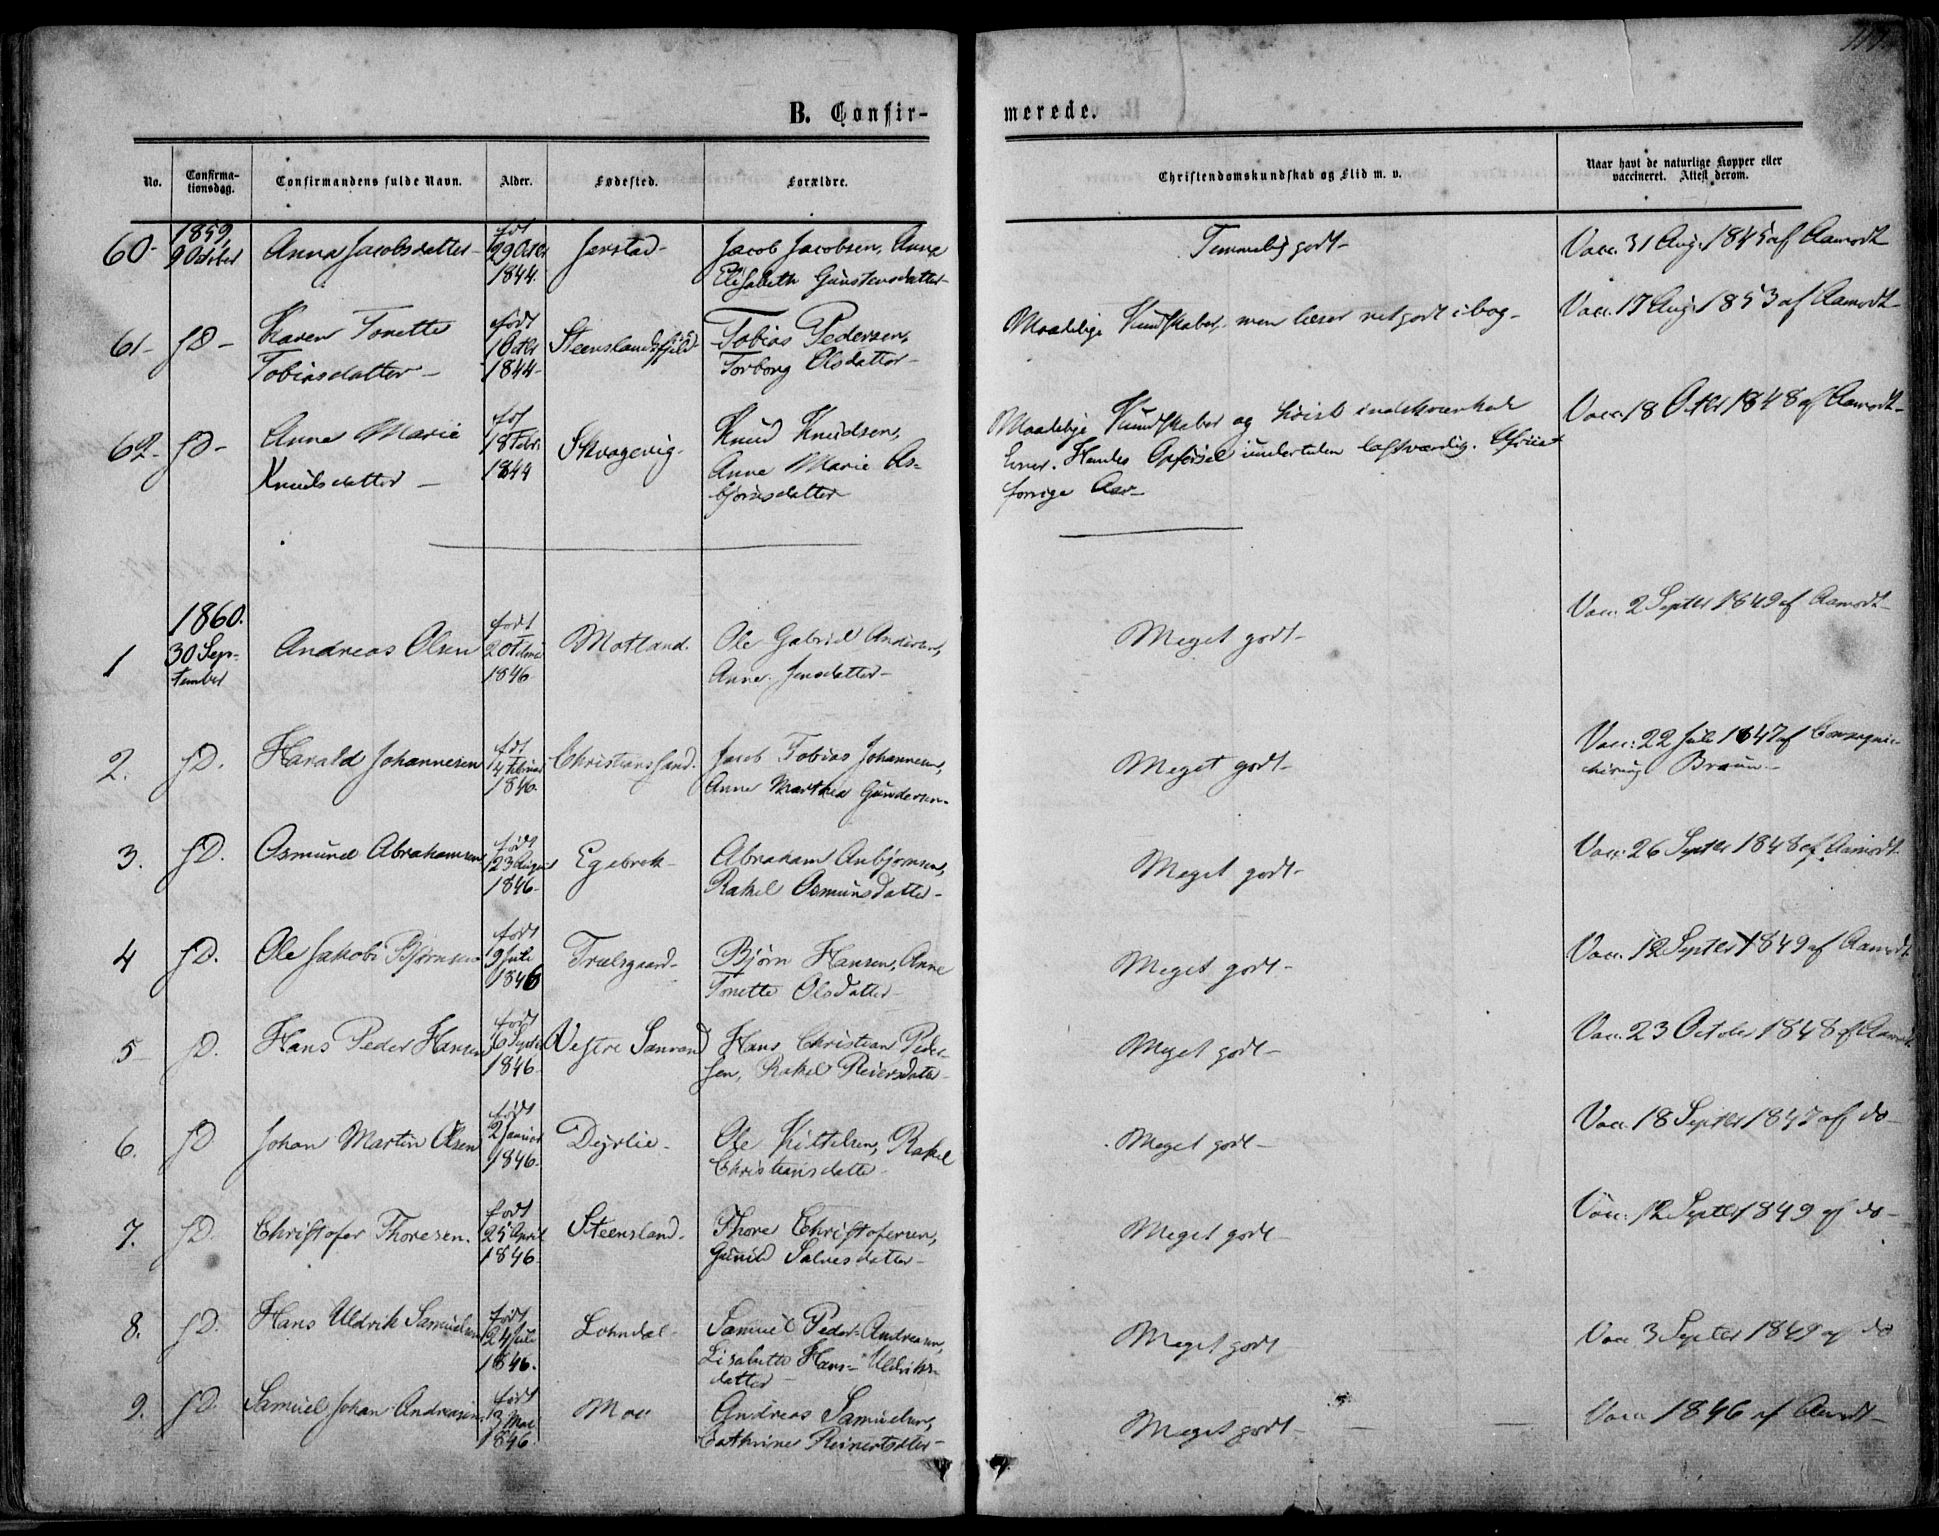 B. Confir-
merede.
No.
Confirma-
tionsdag.
Confirmandens fulde Navn.
Alder.
Fødested.
Forældre.
Christendomskundskab og Flid m. v.
Naar havt de naturlige Kopper eller
vaccineret. Attest derom.
60-
1859,
9 October
Anna Jacobsdatter-
født
29 Octbr
1844.
Jerstad-
Jacob Jacobsen, Anne
Elisabeth Gunstensdatter-
Temmelig godt-
Vacc. 31 Aug. 1845 af Aamodt
61-
JD-
Karen Tonette
Tobiasdatter-
født
1 Octbr
1844-
Steenslandsfjeld
Tobias Pedersen,
Torborg Olsdatter-
Maadelige Kundskaber, men læser ret godt i bog-
Vacc. 17 Aug. 1853 af Aamodt-
62-
JD-
Anne Marie
Knudsdatter-
født
18 Febr.
1844
Skragevig-
Knud Knudsen,
Anne Marie As-
bjørnsdatter
Maadelige Kundskaber og høist indskrænkede
Evner. Hendes Opførsel undertiden lastværdig. Afviist
forrige Aar-
Vacc. 18 Octbr 1848 af Aamodt-
1
1860.
30 Sep-
tember
Andreas Olsen
født
20 Febr
1846
Motland.
Ole Gabriel Andersen,
Anne Jensdatter-
Meget godt-
Vacc. 2 Septbr 1849 af Aamodt-
2.
JD.
Harald Johannesen
født
14 Februar
1846.
Christianssand.
Jacob Tobias Johannesen,
Anne Marthea Gundersen-
Meget godt-
Vacc. 22 Juli 1847 af
Braun-
3.
JD.
Osmund Abrahamsen
født
23 August
1846-
Egebrok-
Abraham Anbjørnsen,
Rakel Osmunsdatter-
Meget godt-
Vacc. 26 Septbr 1848 af Aamodt
4
JD.
Ole Jakob Bjørnsen
født
9 Juli
1846
Trælsgaard-
Bjørn Hansen, Anne
Tonette Olsdatter-
Meget godt-
Vacc. 12 Septbr 1849 af Aamodt
5
JD.
Hans Peder Hansen
født
6 Septbr
1846-
Vestre Sanvand
Hans Christian Peder-
sen, Rakel Reiersdatter-
Meget godt-
Vacc. 23 October 1848 af Aamodt
6.
JD
Johan Martin Olsen
født
2 Januar
1846-
Dyrlie-
Ole Kittelsen, Rakel
Christiansdatter-
Meget godt-
Vacc. 18 Septbr 1847 af do-
7.
JD.
Christofer Thoresen.
født
25 April
1846-
Steensland.
Thore Christofersen,
Gunild Salvesdatter-
Meget godt-
Vacc. 12 Septbr 1849 af do-
8.
JD.
Hans Uldrik Samuelsen
født
24 Juli
1846.
Lohndal-
Samuel Peder Andreasen,
Lisabette Hans-Uldriks-
datter-
Meget godt
Vacc. 3 Septbr 1849 af do
9.
JD.
Samuel Johan Andreasen
født
13 Mai
1846.
Moe
Andreas Samuelsen,
Cathrine Reinertsdtter-
Meget godt-
Vacc. 1846 af Aamodt-